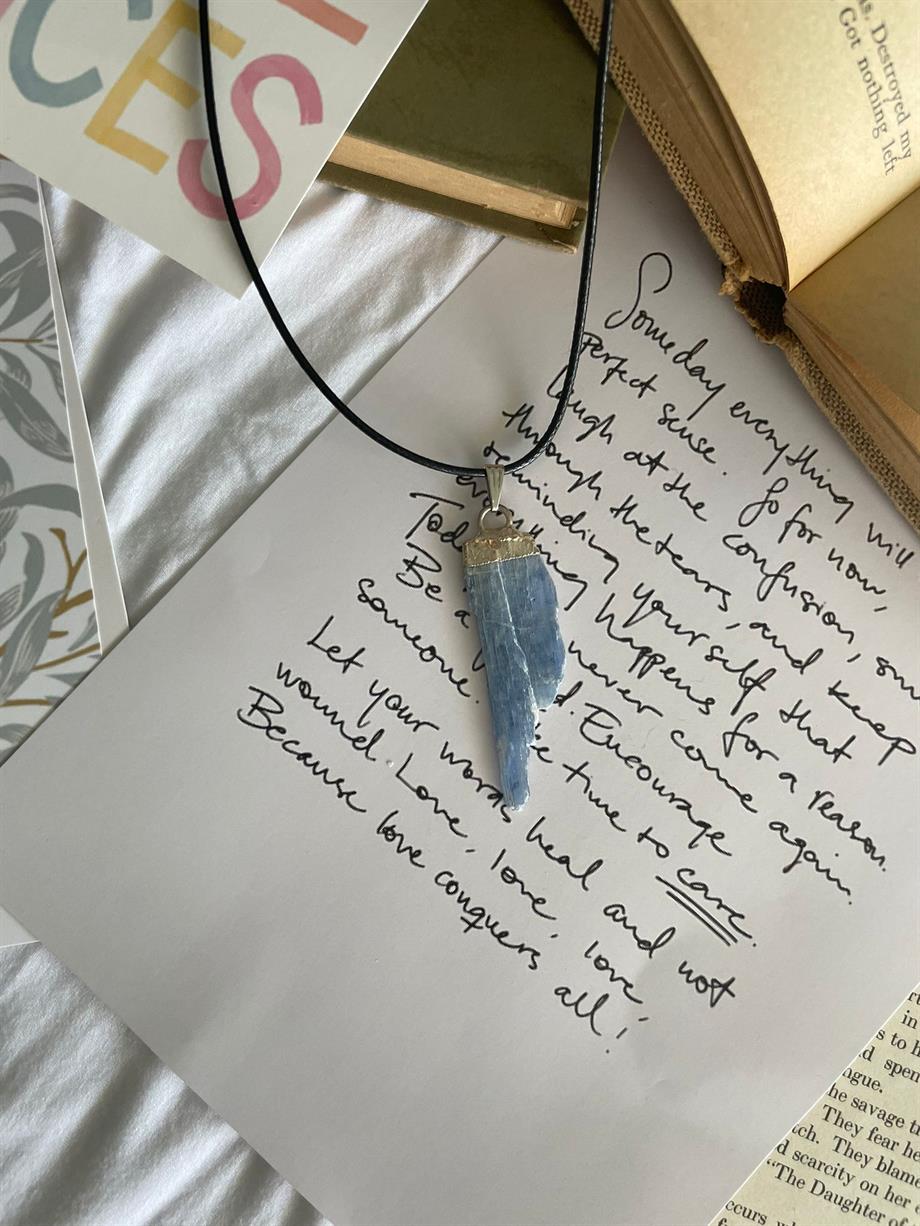 CES
s. Destroyed my
Got nothing left
Someday everything will
Perfect sense. So for now,
laugh at the confusion, sm
through the tears, and keep
reminding yourself that
everything happens for a reason.
Today never come again.
Be a . Encourage
someone. time to care.
Let your words heal and not
wound. Love, love, love,
Because love conquers all!
in
s to h
d spen
ngue.
he savage t
They fear he
tch. They blame
d scarcity on her
"The Daughter of
occurs